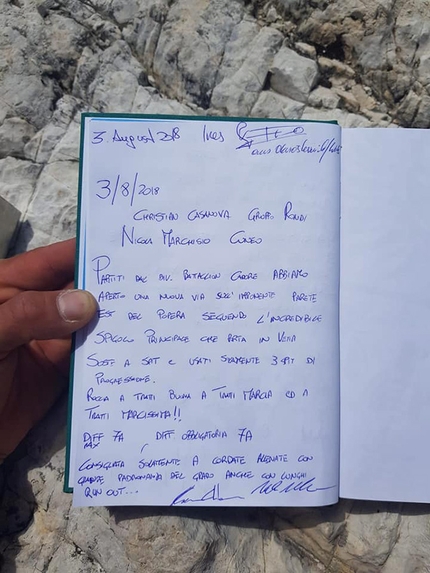 3. August 2018 Ines
3/8/2018
CHRISTIAN CASANOVA GRUPO RONDI
NICOLA MARCHISIO CUNEO
PARTITI DAL BIV. BATTAGLION CADORE ABBIAMO
APERTO UNA NUOVA VIA SULL'IMPONENTE PARETE
EST DEL POPERA SEGUENDO L'INCREDIBILE
SPIGOLO PRINCIPALE CHE PORTA IN VETTA
SOSTE A SPIT E USATI SOLAMENTE 3 SPIT DI
PROGRESSIONE.
ROCCIA A TRATTI BUONA A TRATTI MARCIA ED A
TRATTI MARCISSIMA!!
DIFF 7A DIFF OBBLIGATORIA 7A
MAX
CONSIGLIATA SOLAMENTE A CORDATE ALLENATE CON
GRANDE PADRONANZA DEL GRADO ANCHE CON LUNGHI
RUN OUT...